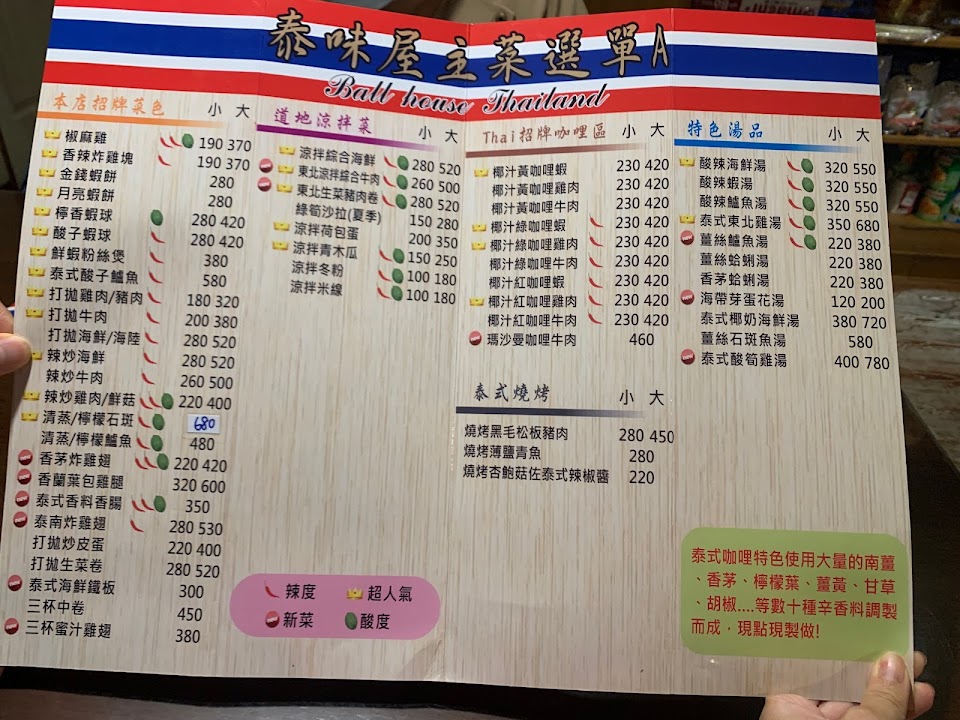 泰味屋主菜選單A
Ball house Thailand
本店招牌菜色 小 大
椒麻雞 190 370
香辣炸雞塊 190 370
金錢蝦餅 280
月亮蝦餅 280
檸香蝦球 280 420
酸子蝦球 280 420
鮮蝦粉絲煲 380
泰式酸子鱸魚 580
打拋雞肉/豬肉 180 320
打拋牛肉 200 380
打拋海鮮/海陸 280 520
辣炒海鮮 280 520
辣炒牛肉 260 500
辣炒雞肉/鮮菇 220 400
清蒸/檸檬石斑 680
清蒸/檸檬鱸魚 480
香茅炸雞翅 220 420
香蘭葉包雞腿 320 600
泰式香料香腸 350
泰南炸雞翅 280 530
打拋炒皮蛋 220 400
打拋生菜卷 280 520
泰式海鮮鐵板 300
三杯中卷 450
三杯蜜汁雞翅 380
道地涼拌菜 小 大
涼拌綜合海鮮 280 520
東北涼拌綜合牛肉 260 500
東北生菜豬肉卷 280 520
綠筍沙拉(夏季) 150 280
涼拌荷包蛋 200 350
涼拌青木瓜 150 250
涼拌冬粉 100 180
涼拌米線 100 180
辣度 超人氣
新菜 酸度
Thai招牌咖哩區 小 大
椰汁黃咖哩蝦 230 420
椰汁黃咖哩雞肉 230 420
椰汁黃咖哩牛肉 230 420
椰汁綠咖哩蝦 230 420
椰汁綠咖哩雞肉 230 420
椰汁綠咖哩牛肉 230 420
椰汁紅咖哩蝦 230 420
椰汁紅咖哩雞肉 230 420
椰汁紅咖哩牛肉 230 420
瑪沙曼咖哩牛肉 460
泰式燒烤 小 大
燒烤黑毛松板豬肉 280 450
燒烤薄鹽青魚 280
燒烤杏鮑菇佐泰式辣椒醬 220
特色湯品 小 大
酸辣海鮮湯 320 550
酸辣蝦湯 320 550
酸辣鱸魚湯 320 550
泰式東北雞湯 350 680
薑絲鱸魚湯 220 380
薑絲蛤蜊湯 220 380
香茅蛤蜊湯 220 380
海帶芽蛋花湯 120 200
泰式椰奶海鮮湯 380 720
薑絲石斑魚湯 580
泰式酸筍雞湯 400 780
泰式咖哩特色使用大量的南薑
、香茅、檸檬葉、薑黃、甘草
、胡椒....等數十種辛香料調製
而成，現點現製做!